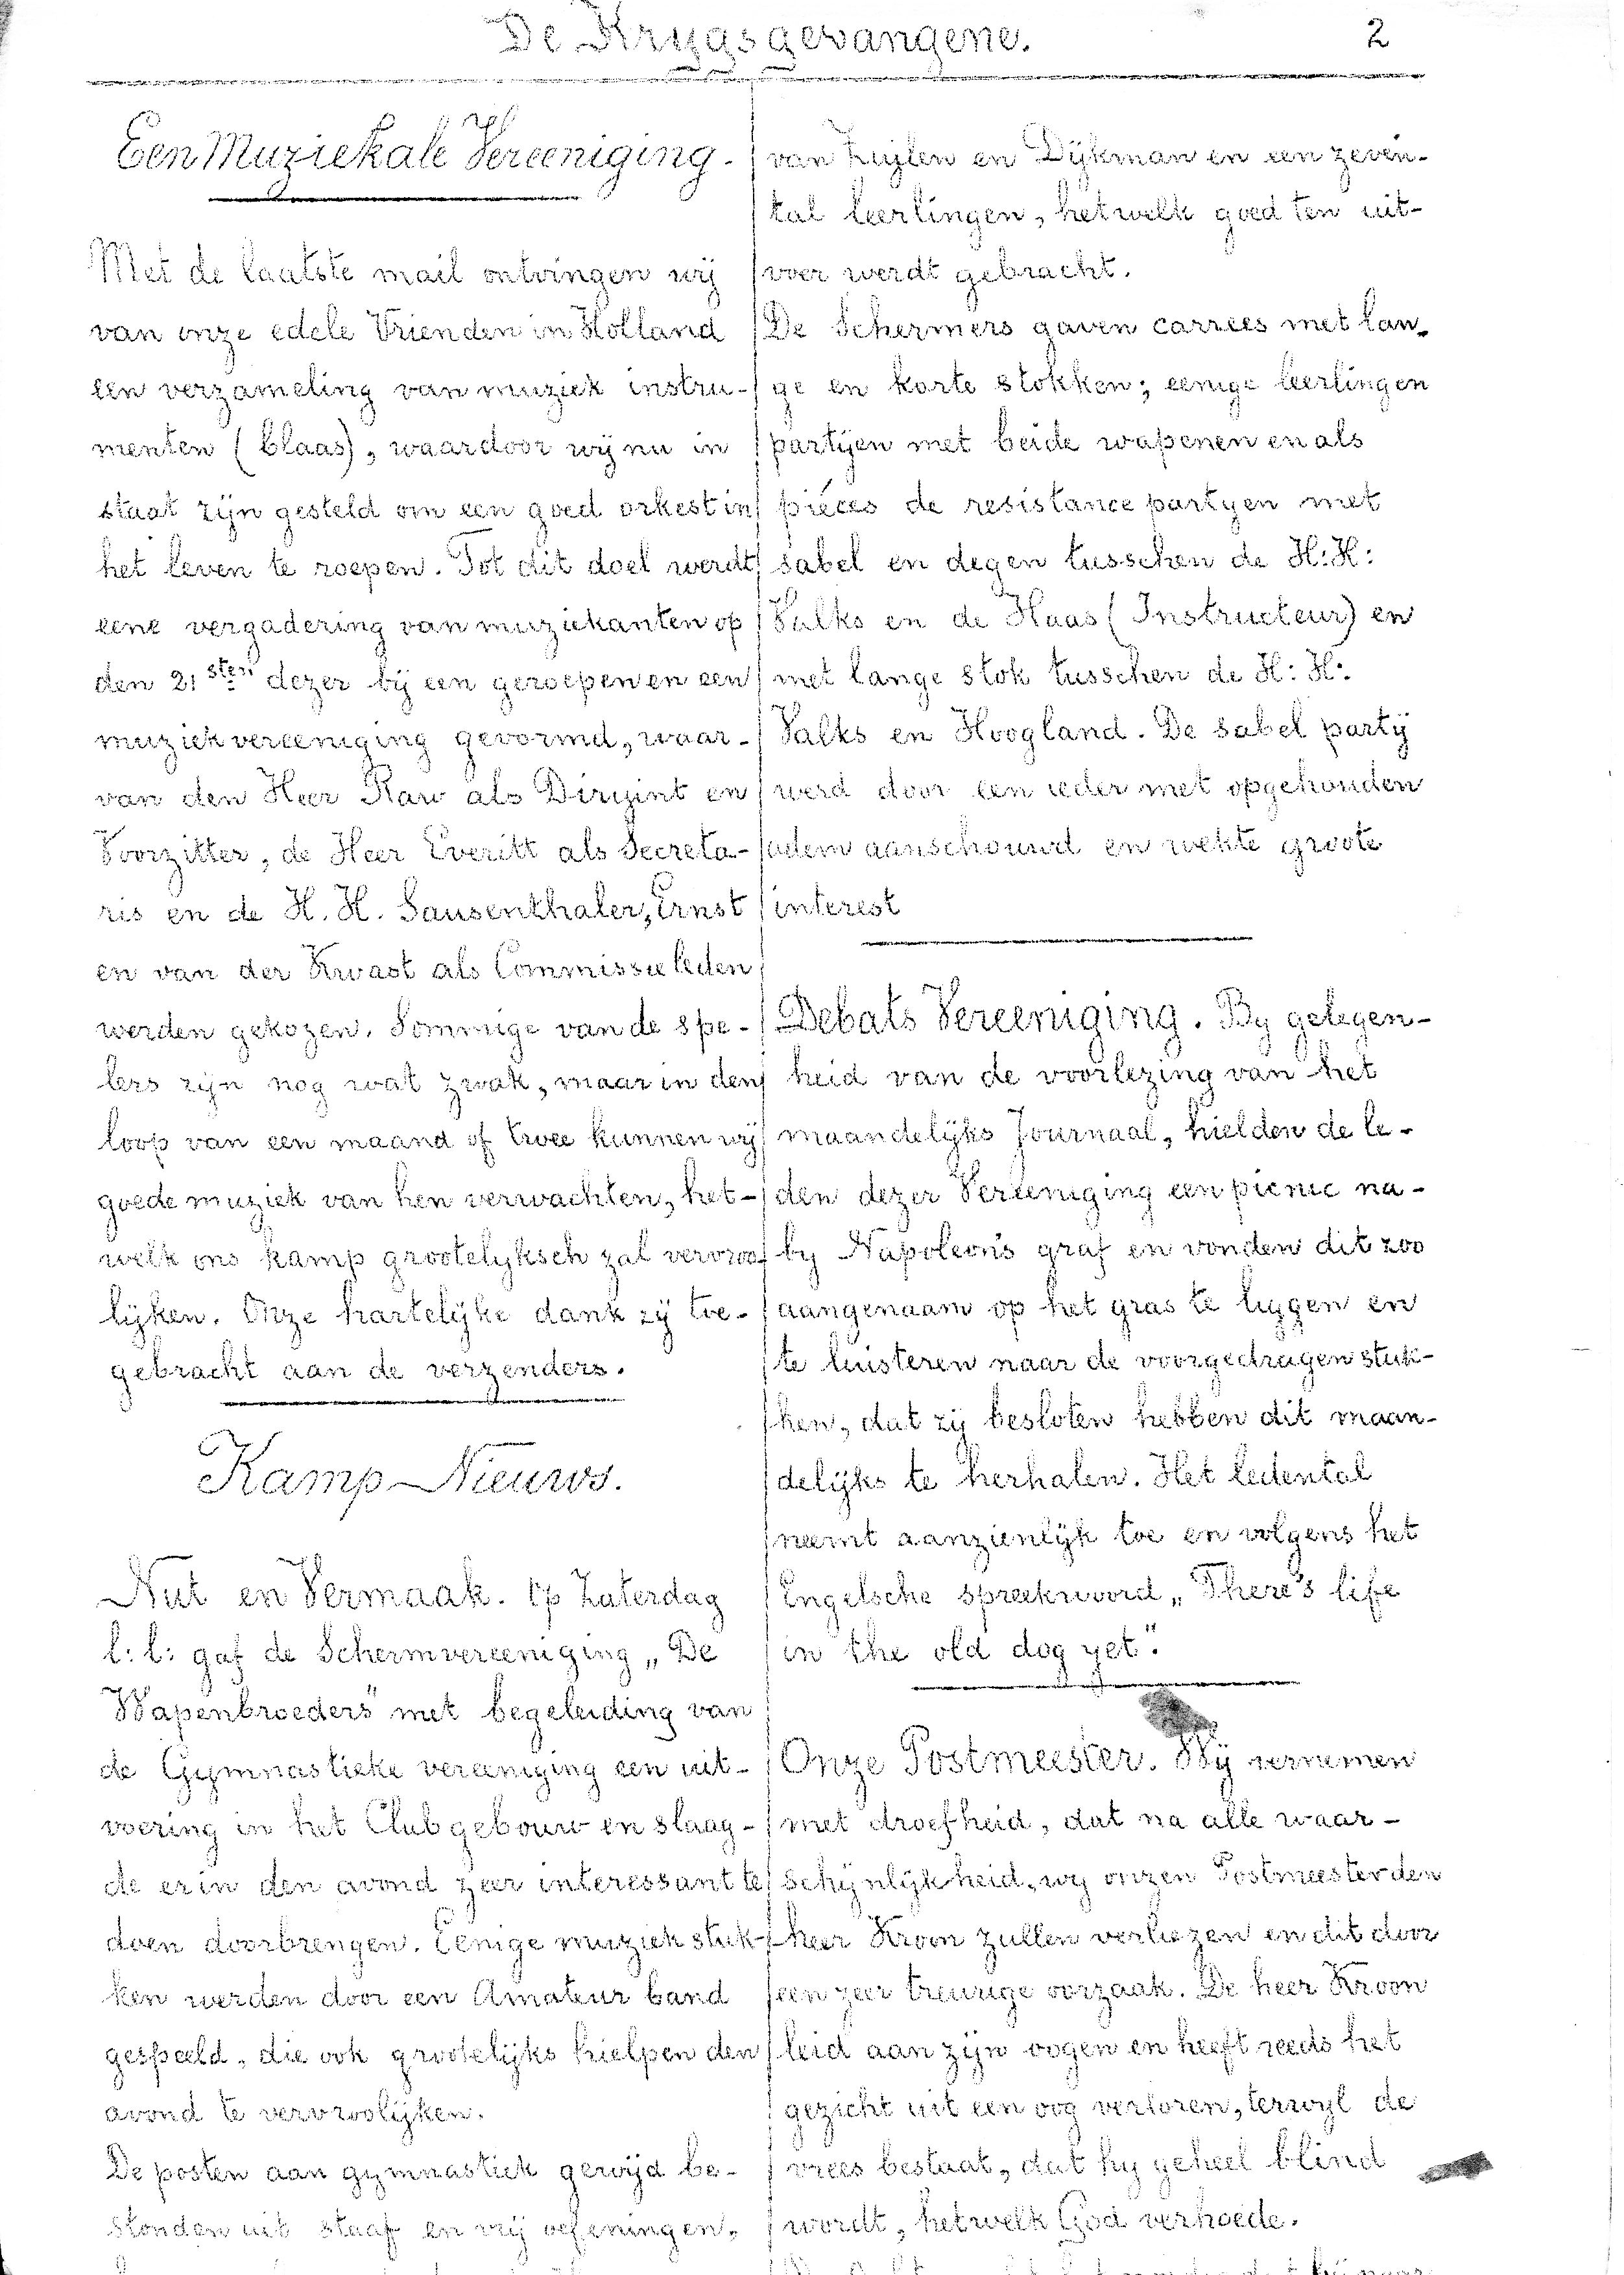 De Krygsgevangene. 2
Een Muziekale Vereeniging.
Met de laatste mail ontvingen wij
van onze edele Vrienden in Holland
een verzameling van muziek instru-
menten (blaas), waardoor wij nu in
staat zijn gesteld om een goed orkest in
het leven te roepen. Tot dit doel werdt
eene vergadering van muziekanten op
den 21sten dezer bij een geroepen en een
muziekvereeniging gevormd, waar-
van den Heer Raw als Dirigint en
Voorzitter, de Heer Everitt als Secreta-
ris en de H. H. Sausenthaler, Ernst
en van der Kwast als Commissie leden
werden gekozen. Sommige van de spe-
lers zijn nog wat zwak, maar in den
loop van een maand of twee kunnen wij
goede muziek van hen verwachten, het-
welk ons kamp grootelyksch zal vervroo-
lijken. Onze hartelijke dank zij toe-
gebracht aan de verzenders.
Kamp Nieuws.
Nut en Vermaak. Op Zaterdag
l: l: gaf de Schermvereeniging „De
Wapenbroeders" met begeleiding van
de Gymnastieke vereeniging een uit-
voering in het Clubgebouw en slaag-
de er in den avond zeer interessant te
doen doorbrengen. Eenige muziek stuk-
ken werden door een Amateur band
gespeeld, die ook grootelijks hielpen den
avond te vervroolijken.
De posten aan gymnastiek gewijd be-
stonden uit staaf en vrij oefeningen,
van Zuijlen en Dijkman en een zeven-
tal leerlingen, hetwelk goed ten uit-
voer werdt gebracht.
De Schermers gaven carrees met lan-
ge en korte stokken; eenige leerlingen
partijen met beide wapenen en als
piéces de resistance partyen met
sabel en degen tusschen de H: H:
Valks en de Haas (Instructeur) en
met lange stok tusschen de H: H:
Valks en Hoogland. De sabel partij
werd door een ieder met opgehouden
adem aanschouwd en wekte groote
interest
Debats Vereeniging. By gelegen-
heid van de voorlezing van het
maandelijks Journaal, hielden de le-
den dezer Vereeniging een picnic na-
by Napoleon's graf en vonden dit zoo
aangenaam op het gras te liggen en
te luisteren naar de voorgedragen stuk-
ken, dat zij besloten hebben dit maan-
delijks te herhalen. Het ledental
neemt aanzienlijk toe en volgens het
Engelsche spreekwoord „There's life
in the old dog yet".
Onze Postmeester. Wij vernemen
met droefheid, dat na alle waar-
schijnlijkheid, wij onzen Postmeester den
heer Kroon zullen verliezen en dit door
een zeer treurige oorzaak. De heer Kroon
leid aan zijn oogen en heeft reeds het
gezicht uit een oog verloren, terwyl de
vrees bestaat, dat hy geheel blind
wordt, hetwelk God verhoede.